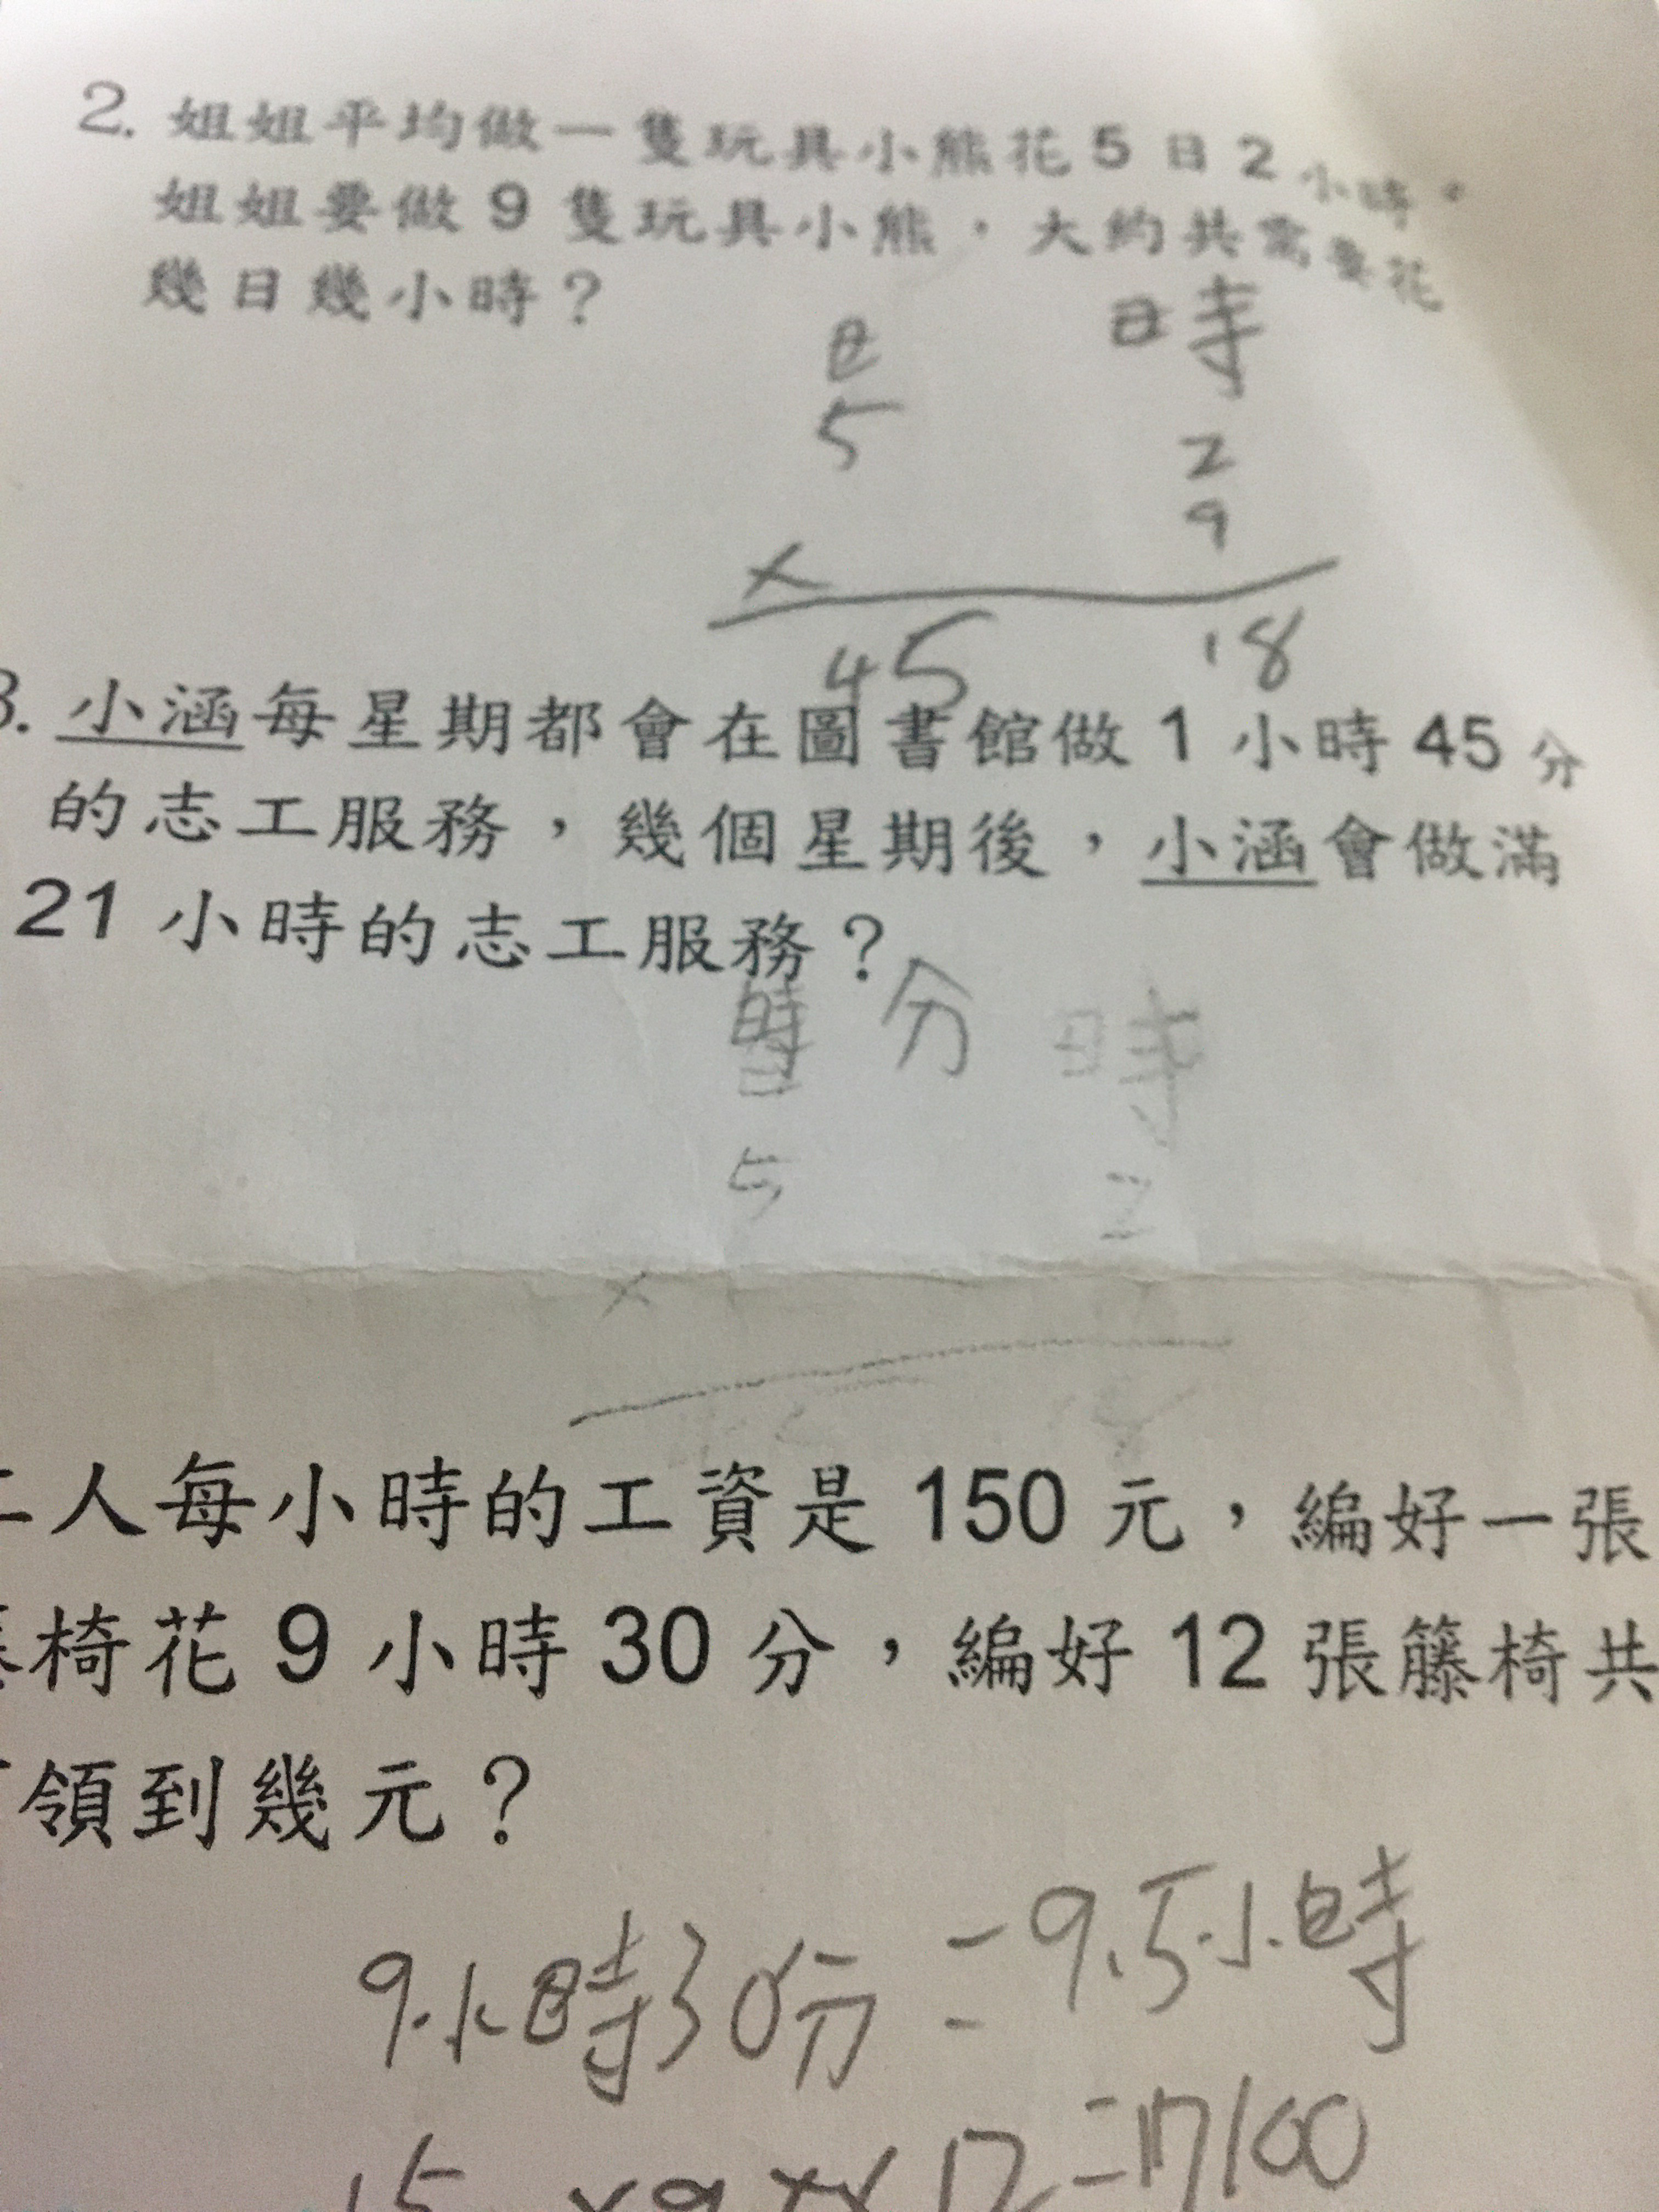 2. 姐姐平均做一隻玩具小熊花5日2小時。
姐姐要做9隻玩具小熊，大約共需要花
幾日幾小時？
日 時
5 2
9
×
45 18
3. 小涵每星期都會在圖書館做1小時45分
的志工服務，幾個星期後，小涵會做滿
21小時的志工服務？
時 分 時
5 2
×
人每小時的工資是150元，編好一張
椅花9小時30分，編好12張籐椅共
領到幾元？
9小時30分=9.5小時
=17100